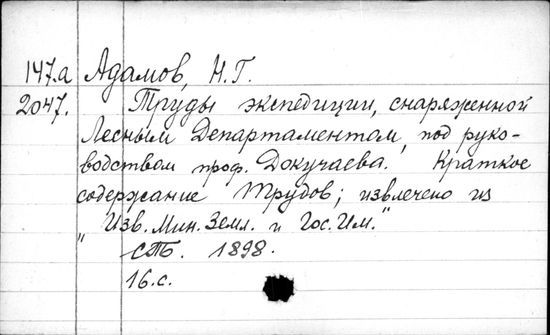 147.а Адамов, Н.Г.
2047. Труды экспедиции, снаряженной
Лесным Департаментом, под руко-
водством проф. Докучаева. Краткое
содержание трудов; извлечено из
„Изв. Мин. Земл. и Гос. Им."
СПБ. 1898.
16.с.